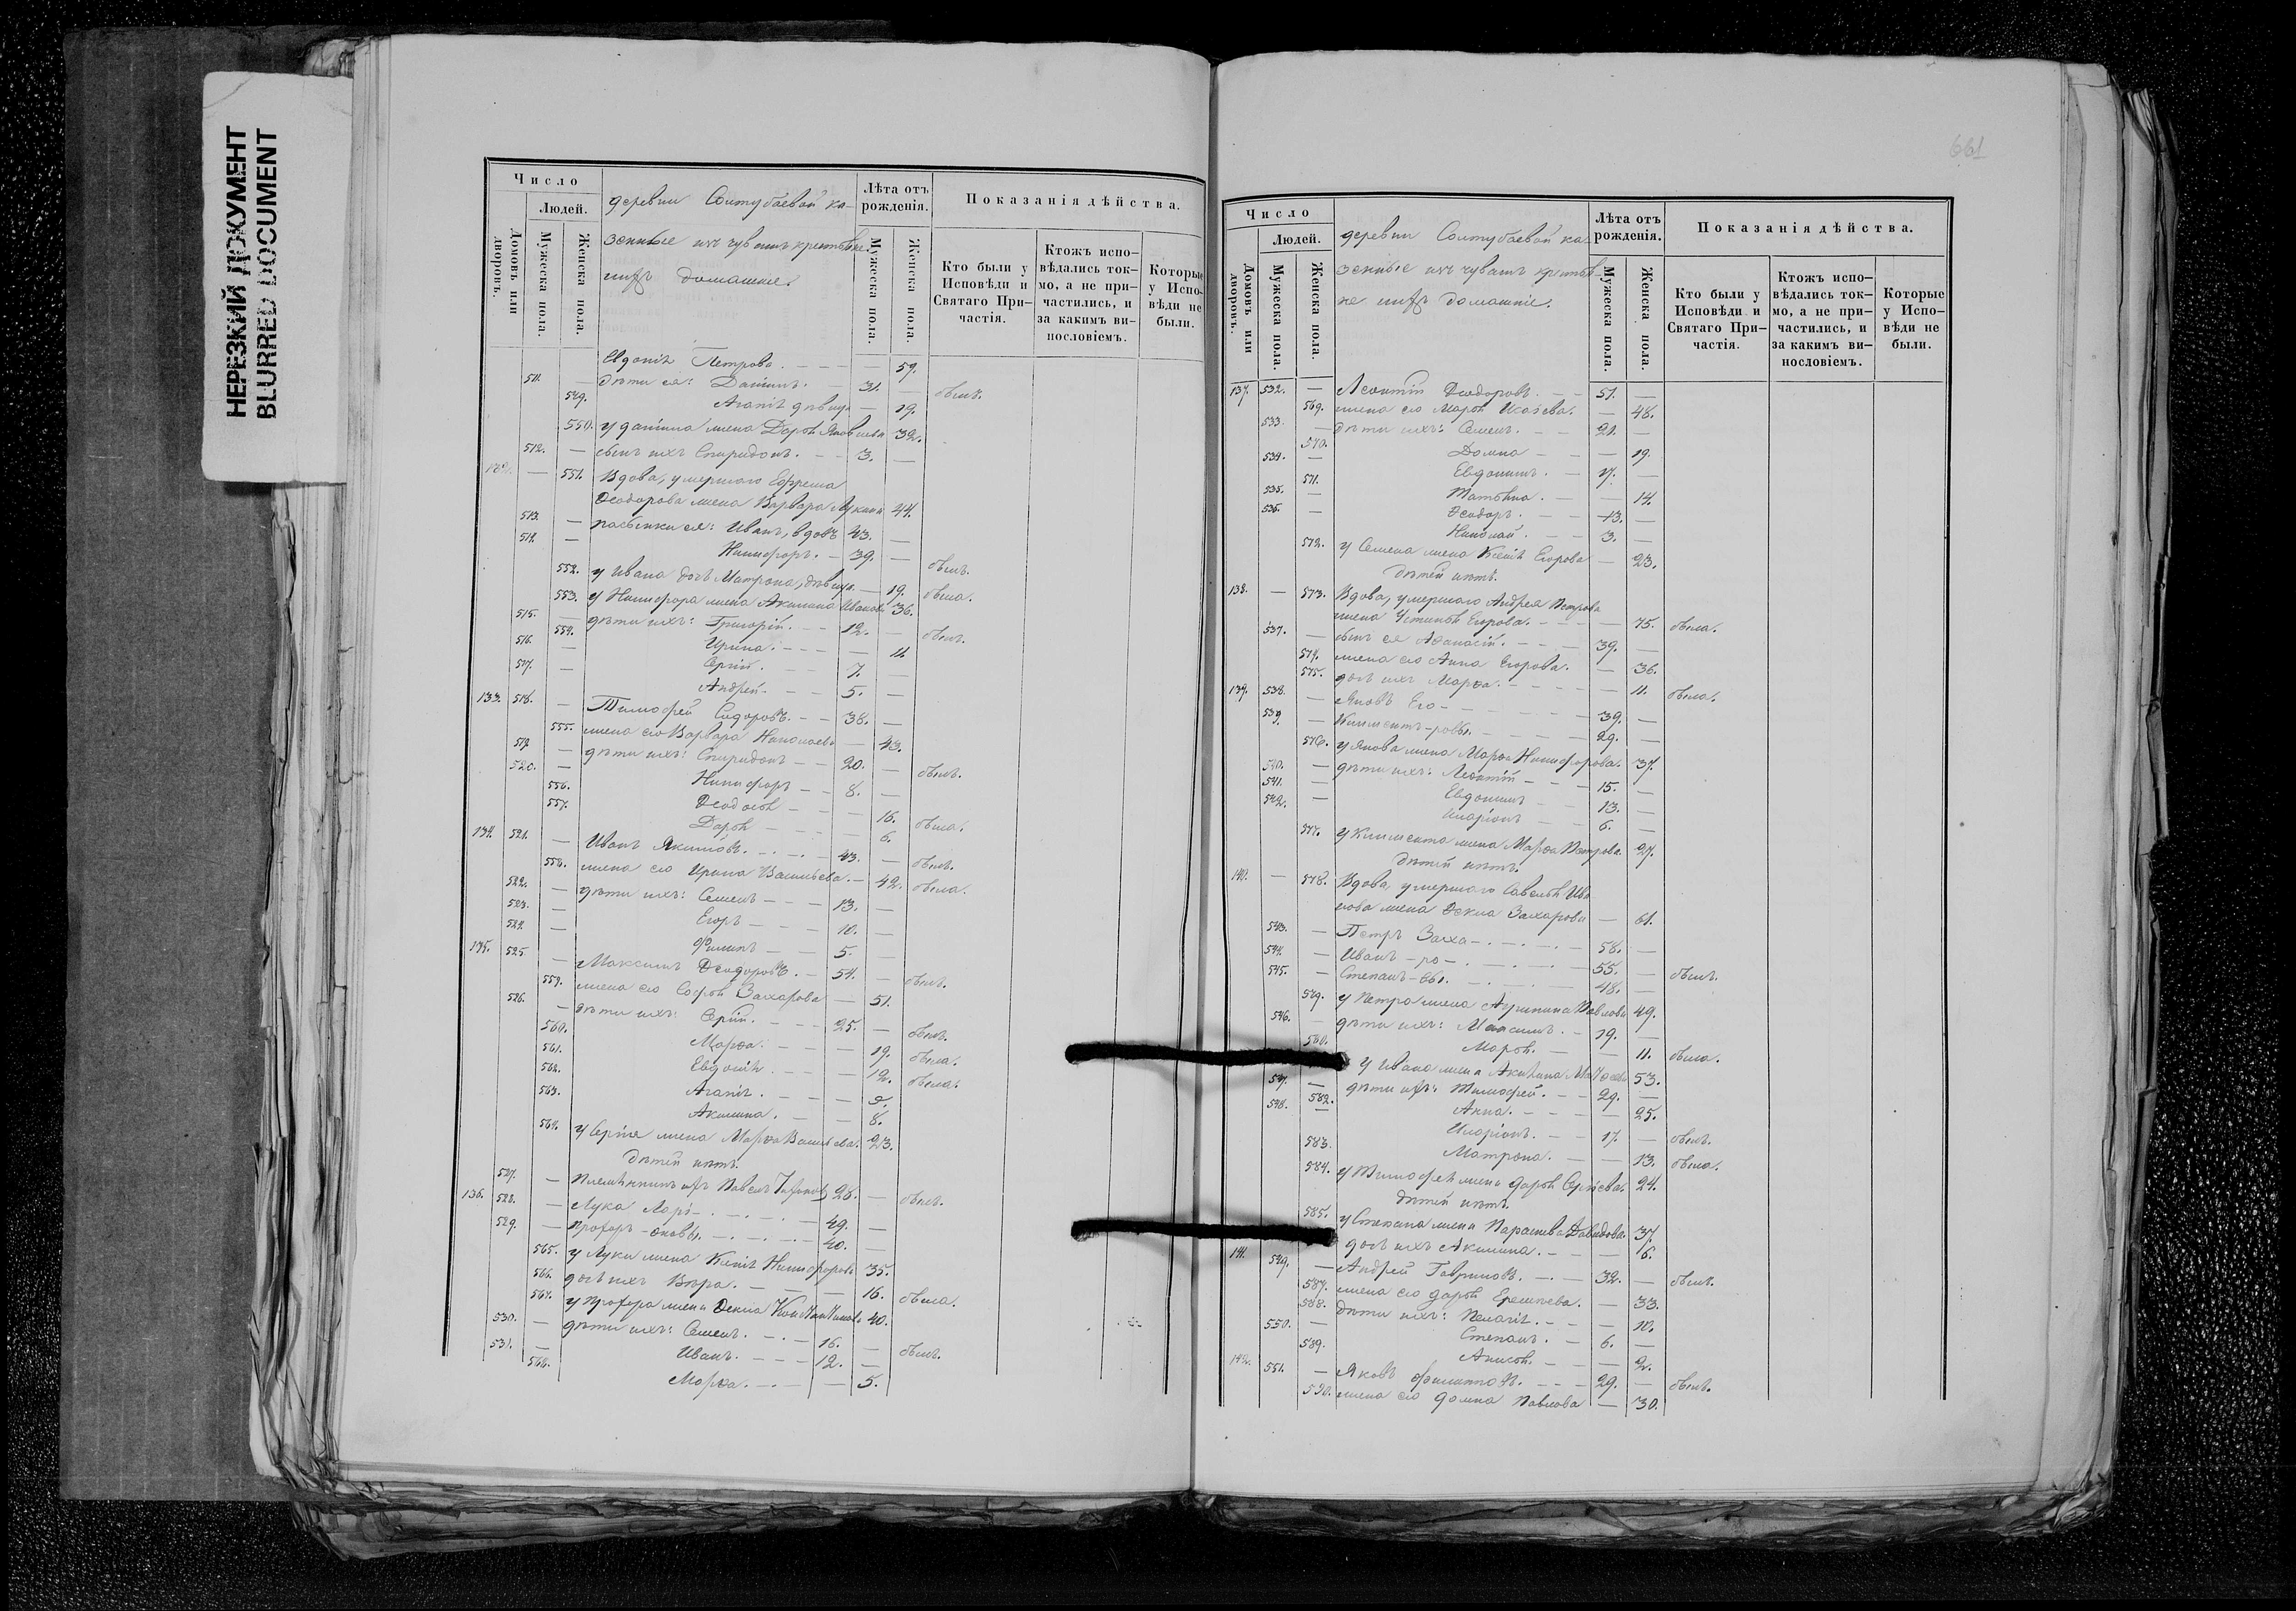 НЕРЕЗКИЙ ДОКУМЕНТ
BLURRED DOCUMENT
Число
Людей.
Домовъ или дворовъ.
Мужеска пола.
Женска пола.
деревни Соитубаевой ка-
зенные изъ чувашъ крестьяне
ихъ домашніе.
Лѣта отъ рожденія.
Мужеска пола.
Женска пола.
Показанія дѣйства.
Кто были у Исповѣди и Святаго При-частія.
Ктожъ испо-вѣдались ток-мо, а не при-частились, и за какимъ ви-нословіемъ.
Которые у Испо-вѣди не были.
Евдокія Петрова. — 59.
511. дѣти ея: Даніилъ. — 31. — былъ.
549. Агапія дѣвица — 19.
550. у Даніила жена Дарья Яковлева 32.
512. — сынъ ихъ Спиридонъ. — 3. —
132. — 551. Вдова, умершаго Ефрема
Ѳеодорова жена Варвара Лукина 44.
513. — пасынки ея: Иванъ, вдовъ 43. —
514. — Никифоръ. — 39. — былъ.
552. у Ивана дочь Матрона, дѣвица. — 19. была.
553. у Никифора жена Акилина Иванова 36.
515. — дѣти ихъ: Григорій. — 12. — былъ.
554. Ирина. — 11.
516. — Сергій. — 7. —
517. — Андрей. — 5. —
133. 518. — Тимофей Сидоровъ. — 38. —
555. жена его Варвара Николаева — 43.
519. — дѣти ихъ: Спиридонъ — 20. — былъ.
520. — Никифоръ — 8. —
556. Ѳеодосья — 16. была.
557. Дарья — 6.
134. 521. — Иванъ Якимовъ. — 43. — былъ.
558. жена его Ирина Васильева. — 42. была.
522. — дѣти ихъ: Семенъ — 13. —
523. — Егоръ — 10. —
524. — Филипъ — 5. —
135. 525. — Максимъ Ѳеодоровъ. — 54. — былъ.
559. жена его Софья Захарова — 51.
526. — дѣти ихъ: Сергій. — 25. — былъ.
560. Марѳа. — 19. была.
561. Евдокія — 12. была.
562. Агапія. —
563. Акилина. — 8.
564. у Сергія жена Марѳа Васильева. 23.
дѣтей нѣтъ.
527. — Племянникъ ихъ Павелъ 26. — былъ.
136. 528. — Лука Лари- — 49. —
529. — Прохоръ -оновы. — 40. —
565. у Луки жена Ксенія Никифорова 35.
566. дочь ихъ Вѣра. — 16. была.
567. у Прохора жена Ѳекла Константинова 40.
530. — дѣти ихъ: Семенъ. — 16. — былъ.
531. — Иванъ. — 12. —
568. Марѳа. — 5.
661
Число
Людей.
Домовъ или дворовъ.
Мужеска пола.
Женска пола.
деревни Соитубаевой ка-
зенные изъ чувашъ крестья-
не ихъ домашніе.
Лѣта отъ рожденія.
Мужеска пола.
Женска пола.
Показанія дѣйства.
Кто были у Исповѣди и Святаго При-частія.
Ктожъ испо-вѣдались ток-мо, а не при-частились, и за какимъ ви-нословіемъ.
Которые у Испо-вѣди не были.
137. 532. — Леонтій Ѳеодоровъ. — 51. —
569. жена его Марья Исаева. — 48.
533. — дѣти ихъ: Семенъ. — 21. —
570. Домна — 19.
534. — Евдокимъ. — 17. —
571. Татьяна. — 14.
535. — Ѳеодоръ. — 13. —
536. — Николай. — 3. —
572. у Семена жена Ксенія Егорова — 23.
дѣтей нѣтъ.
138. — 573. Вдова, умершаго Андрея Петрова
жена Устинья Егорова. — 75. была.
537. — сынъ ея Аѳанасій. — 39. —
574. жена его Анна Егорова. — 36.
575. дочь ихъ Марѳа. — 11. была.
139. 538. — Яковъ Его- — 39. —
539. — Климентъ -ровы. — 29. —
576. у Якова жена Марѳа Никифорова. 37.
540. — дѣти ихъ: Леонтій — 15. —
541. — Евдокимъ — 13. —
542. — Иларіонъ — 6. —
577. у Климента жена Марѳа Петрова. 27.
дѣтей нѣтъ.
140. — 578. Вдова, умершаго Савелья Ива-
нова жена Ѳекла Захарова — 61.
543. — Петръ Заха- — 58. —
544. — Иванъ -ро- — 55. —
545. — Степанъ -вы. — 48. — былъ.
579. у Петра жена Агрипина Павлова 49.
546. — дѣти ихъ: Максимъ. — 19. —
580. Марья. — 11. была.
у Ивана жена Акилина 53.
547. — дѣти ихъ: Тимофей. — 29. —
582. Анна. — 25.
548. — Иларіонъ. — 17. — былъ.
583. Матрона. — 13. была.
584. у Тимофея жена Дарья Сергіева. 24.
дѣтей нѣтъ.
585. у Степана жена Параскева Давидова. 37.
дочь ихъ Акилина. — 6.
141. 549. — Андрей Гавриловъ. — 32. — былъ.
587. жена его Дарья Еремѣева. — 33.
588. дѣти ихъ: Пелагія. — 10.
550. — Степанъ. — 6. —
589. Анисья. — 2.
142. 551. — Яковъ Филипповъ. — 29. — былъ.
590. жена его Домна Павлова — 30.